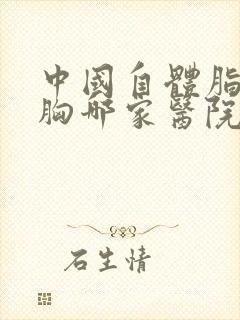 中國自體脂
胸哪家醫院
石生情